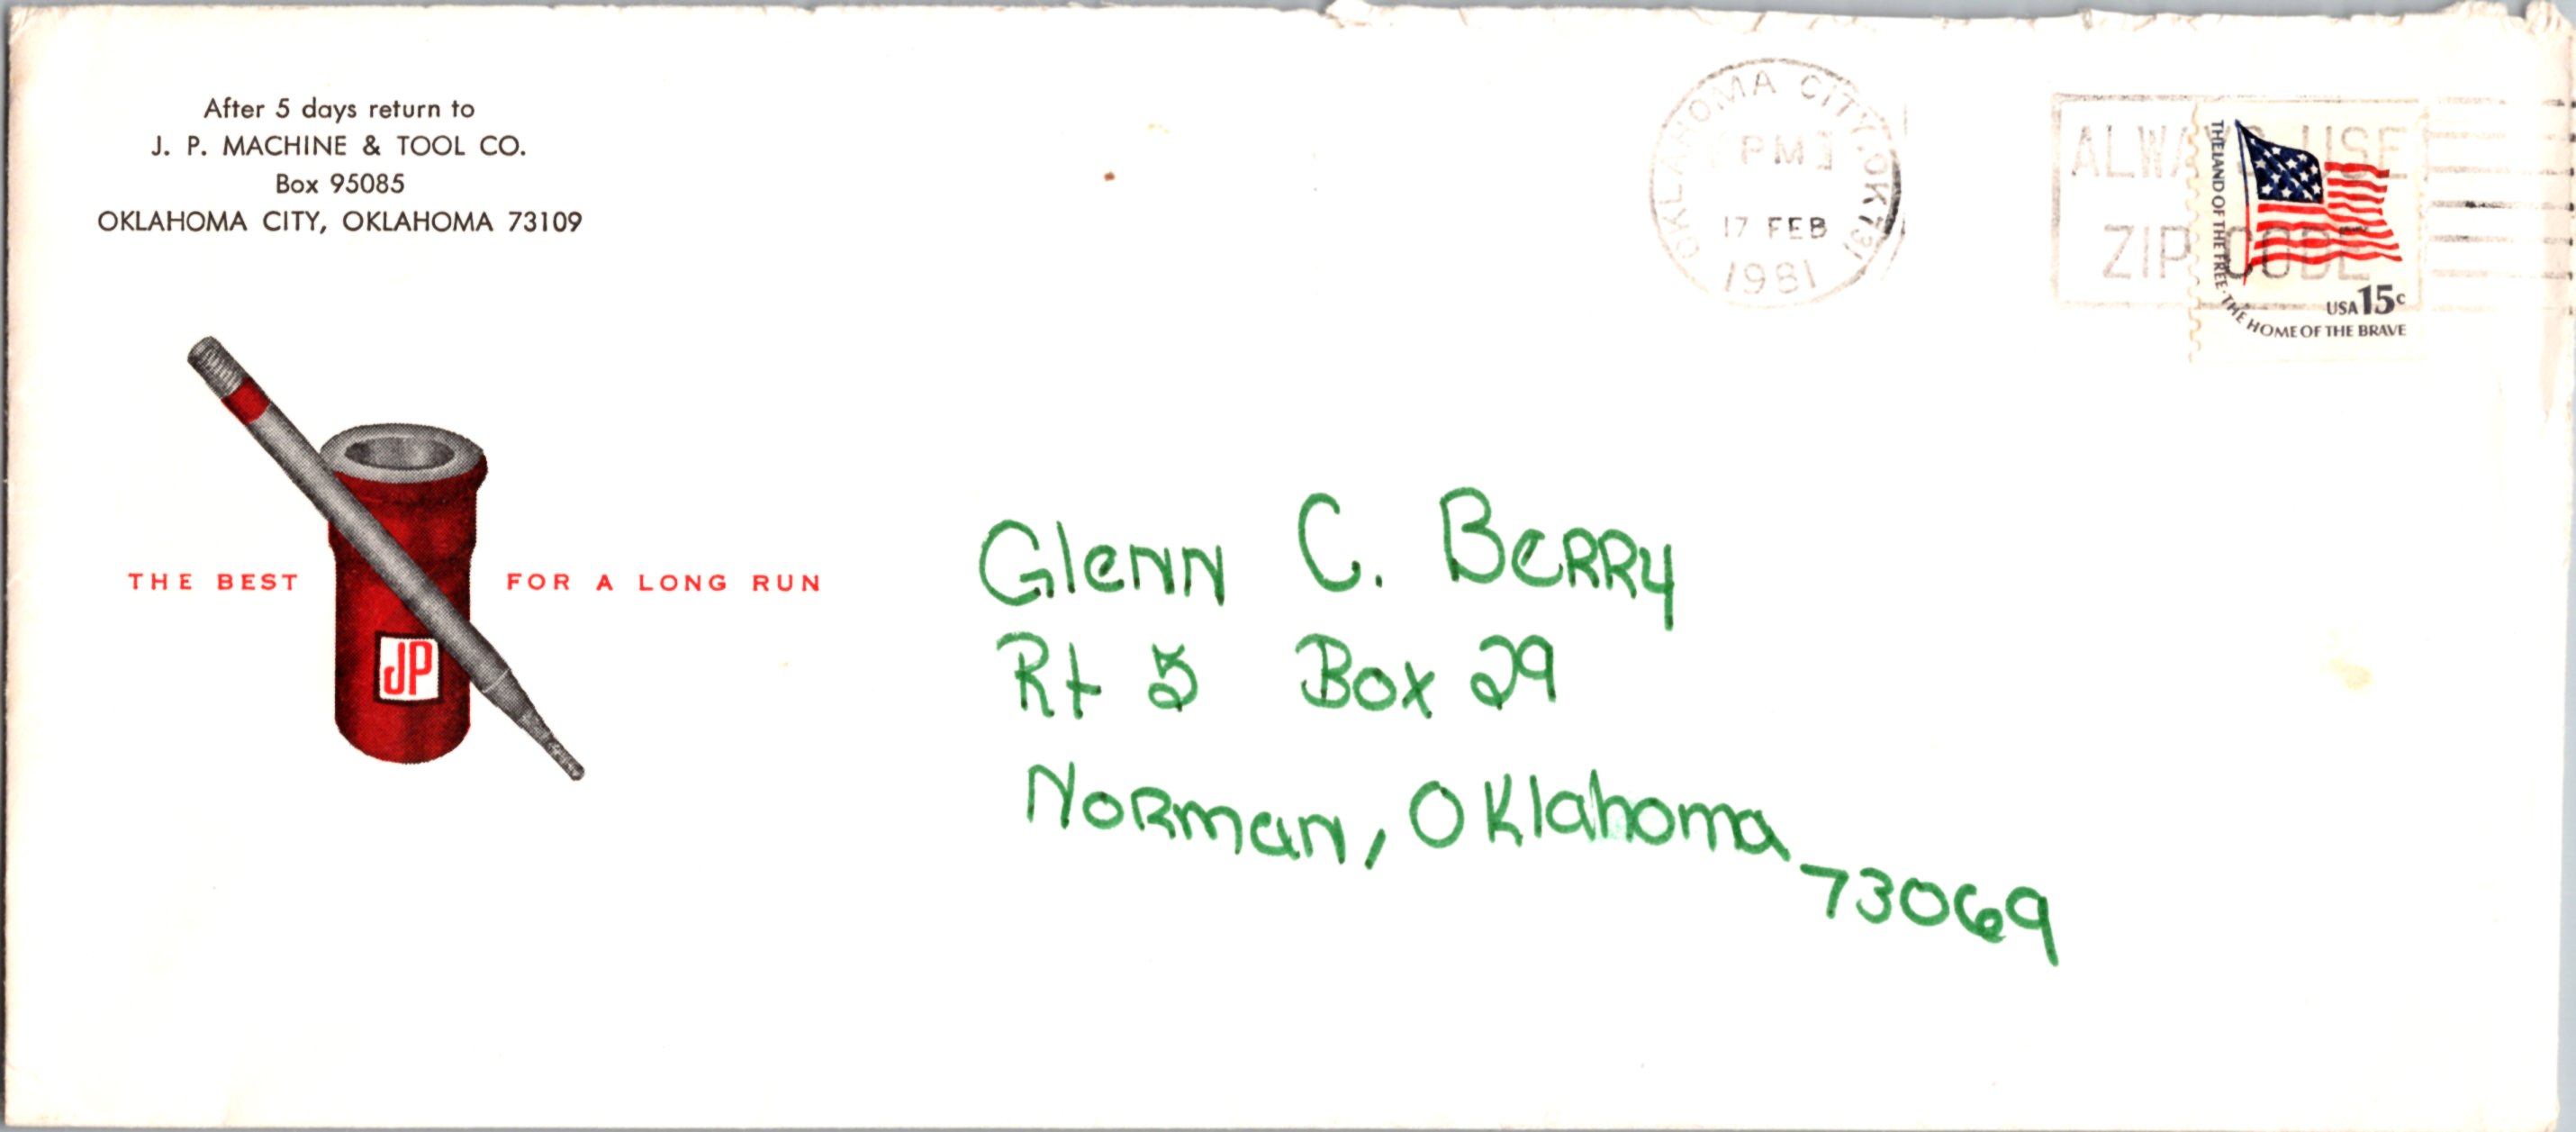 After 5 days return to
J. P. MACHINE & TOOL CO.
Box 95085
OKLAHOMA CITY, OKLAHOMA 73109
OKLAHOMA CITY, OK 731
PM
17 FEB
1981
ALWAYS USE
ZIP CODE
THE LAND OF THE FREE · THE HOME OF THE BRAVE
USA 15c
THE BEST FOR A LONG RUN
JP
Glenn C. Berry
Rt 5 Box 29
Norman, Oklahoma
73069